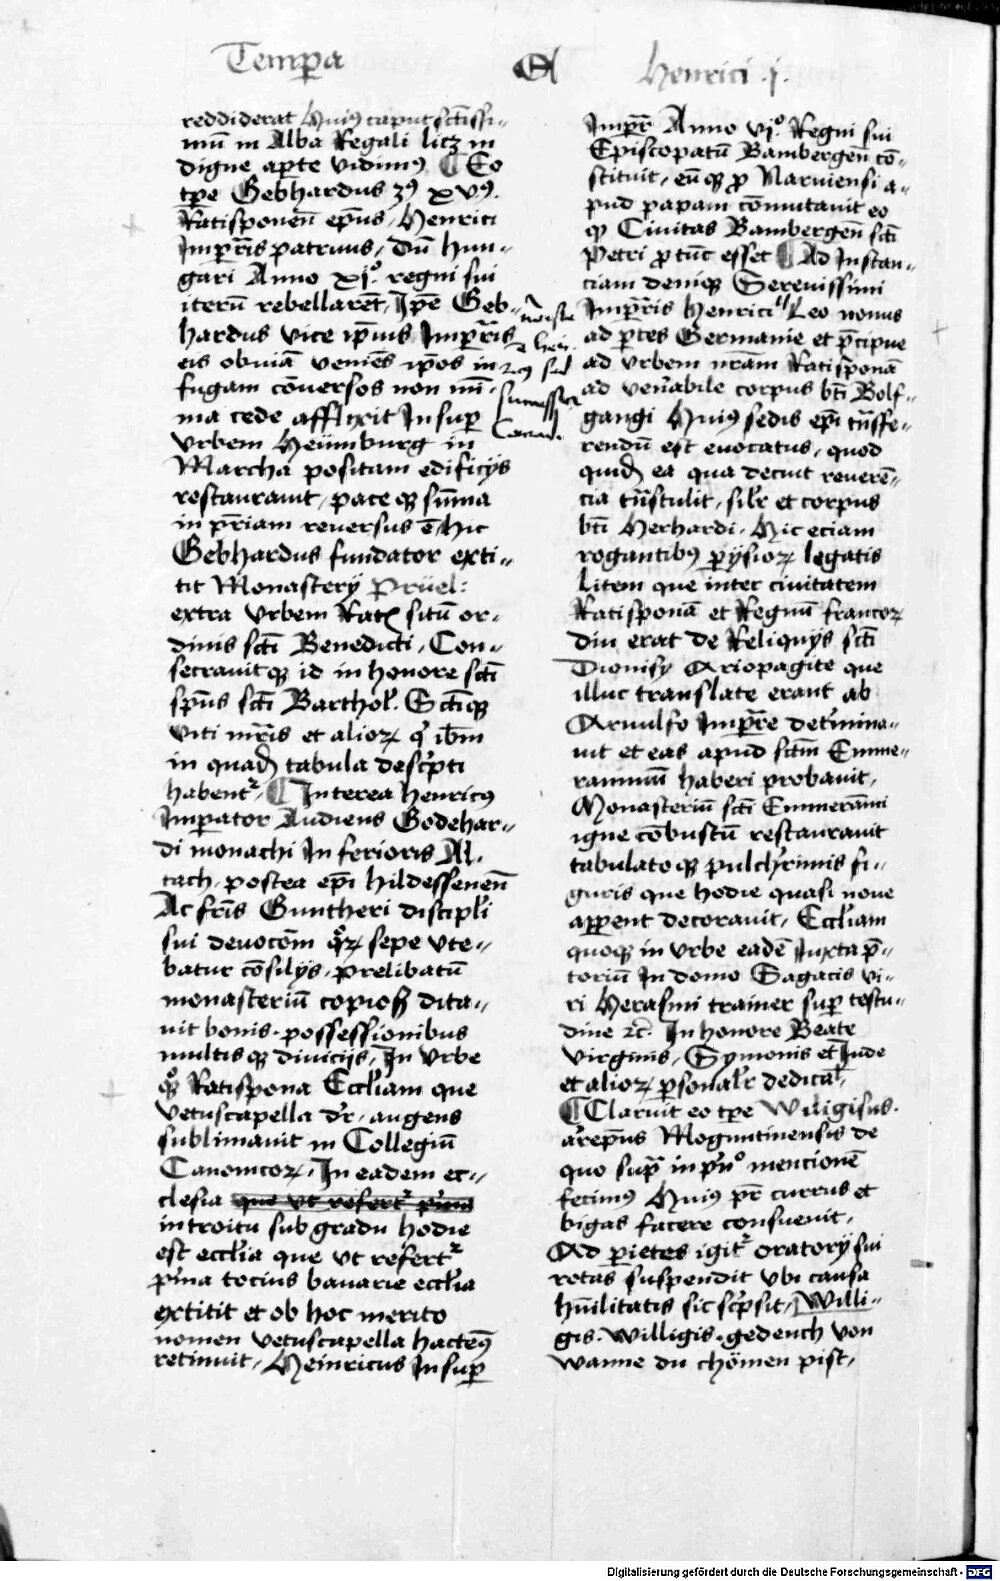 Tempa
Henrici .j.
reddiderat Huiꝰ caput sctissi-
mū in Alba Regali licz in
digne apte vidimꝰ ¶ Eo
tpe Gebhardus 3ꝰ xvꝰ.
Ratisponeñ epus, Henrici
Impris patruus, Dū hun-
gari Anno xjº. regni sui
iterū rebellarēt, Ipe Geb-
hardus vice ipius Impris
eis obviā veniēs ipos in
fugam cōversos non mi-
ma cede afflixit Insup
Vrbem Heümburg in
Marcha positam edificijs
restauravit, pace qꝫ sūma
in priam reversus ē, hic
Gebhardus fundator exti-
tit Monasterij Prüel:
extra Vrbem Ratꝭ sitū or-
dinis scti Benedicti, Con-
secravitqꝫ id in honore scti
spūs scti Barthol. Sctiqꝫ
Viti mris et alioꝝ qͥ ibm
in quadꝫ tabula descpti
habentʳ, ¶ Interea henricꝰ
Imperator Audiens Godehar-
di monachi Inferioris Al-
tach, postea epi hildesseneñ
Ac fris Guntheri discipli
sui devocōm qͦꝝ sepe vte-
batur cōsilijs, prelibatū
monasteriū copioß dita-
vit bonis, possessionibus
multisqꝫ divicijs, In Vrbe
qͦqꝫ Ratispona Eccliam que
Vetuscapella dr, augens
sublimavit in Collegiū
Canonicoꝝ, In eadem ec-
clesia que ut refertʳ pima
introitu sub gradu hodie
est ecclia que ut refertʳ
pima tocius bavarie ecclia
extitit et ob hoc merito
nomen vetuscapella hactenꝰ
retinuit, Heinricus Insup
Impr Anno vjº. Regni sui
Episcopatū Bambergeñ cō-
stituit, eū qꝫ pro Narniensi a-
pud papam cōmutavit eo
qꝫ Civitas Bambergeñ scti
Petri p tūc esset ¶ Ad Instan-
ciam deniqꝫ Serenissimi
Impris Henrici Leo nonus
ad ptes Germanie et pcipue
ad urbem nram Ratisponā
ad venabile corpus bti Wolf-
gangi Huiꝰ sedis epi trāsfe-
rendū est evocatus, quod
quidꝫ ea qua decuit reverē-
cia trāstulit, silr et corpus
bti Herhardi, Hic eciam
rogantibꝰ pijsioꝝ legatis
Litem que inter civitatem
Ratisponā et Regnū francoꝝ
diu erat de Reliquijs scti
Dionisy Ariopagite que
illuc translate erant ab
Arnulfo Impre detmina-
vit et eas apud sctm Emme-
rammū haberi probavit,
Monasteriū scti Emmerāmi
igne cōbustū restauravit
tabulatoqꝫ pulchrimis fi-
guris que hodie quasi nove
apparent decoravit, Eccliam
quoqꝫ in urbe eadē Iuxta p-
toriū In domo Sagacis vi-
ri Herasmi trainer sup testu-
dine zc. In honore Beate
Virginis, Symonis et Iude
et alioꝝ psonalr dedicat,
¶ Claruit eo tpe Willigisus.
arepus Moguntinensis de
quo supra in pnº mencionē
fecimꝰ Huiꝰ pr currus et
bigas facere consuevit,
Ad parietes igitʳ oratorij sui
rotas suspendit ubi causa
huilitatis sic scpsit, Willi-
gis. willigis. gedench von
wanne du chömen pist,